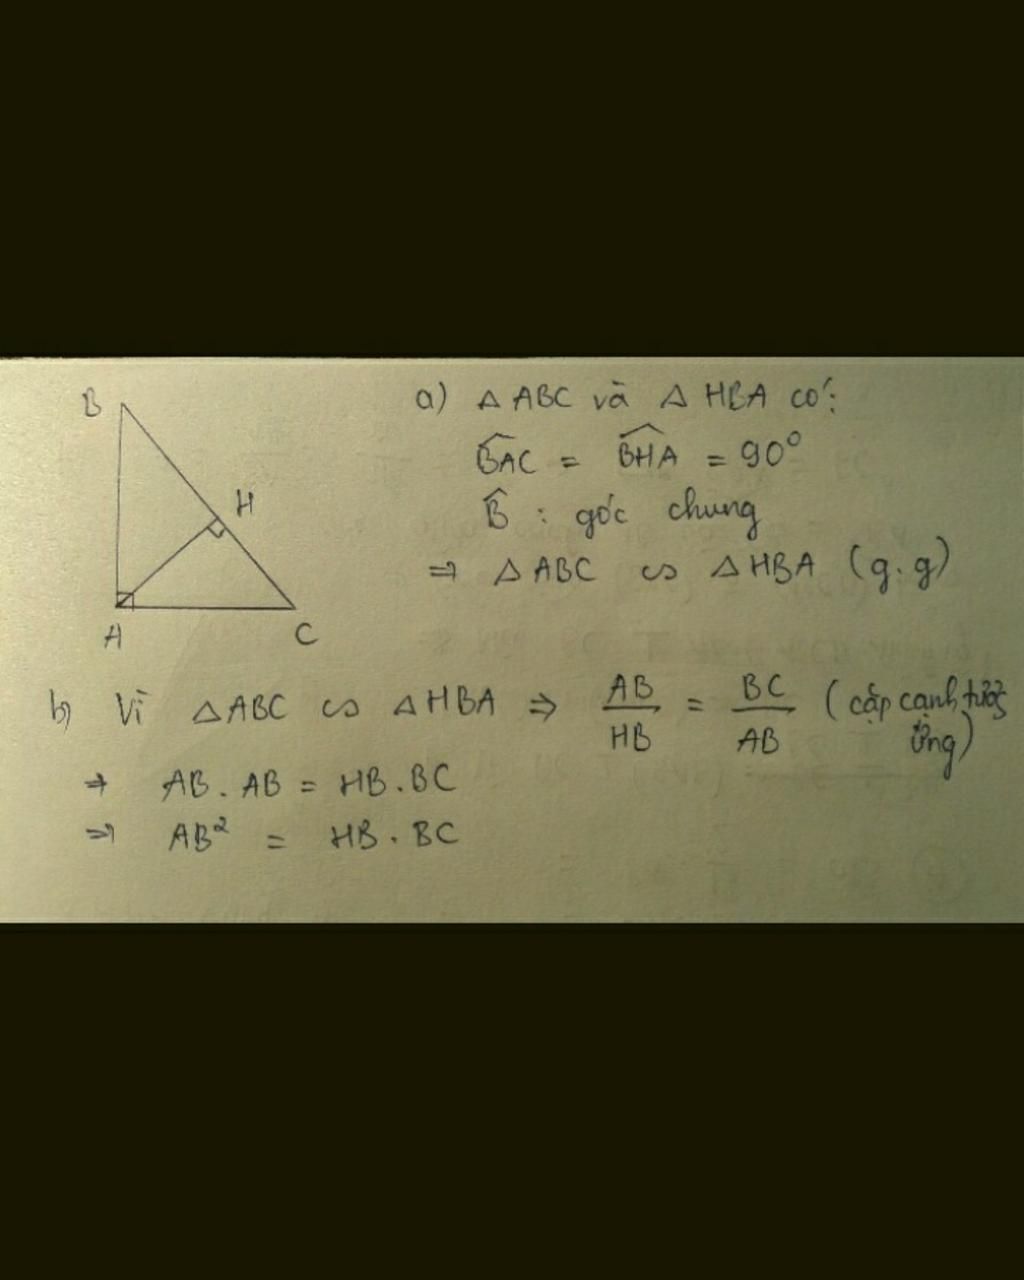 B
H
A
C
a) △ABC và △HBA có:
B̂AC = B̂HA = 90°
B̂ : góc chung
⇒ △ABC ∽ △HBA (g.g)
b) Vì △ABC ∽ △HBA ⇒ AB/HB = BC/AB (cặp cạnh tương ứng)
⇒ AB . AB = HB . BC
⇒ AB² = HB . BC